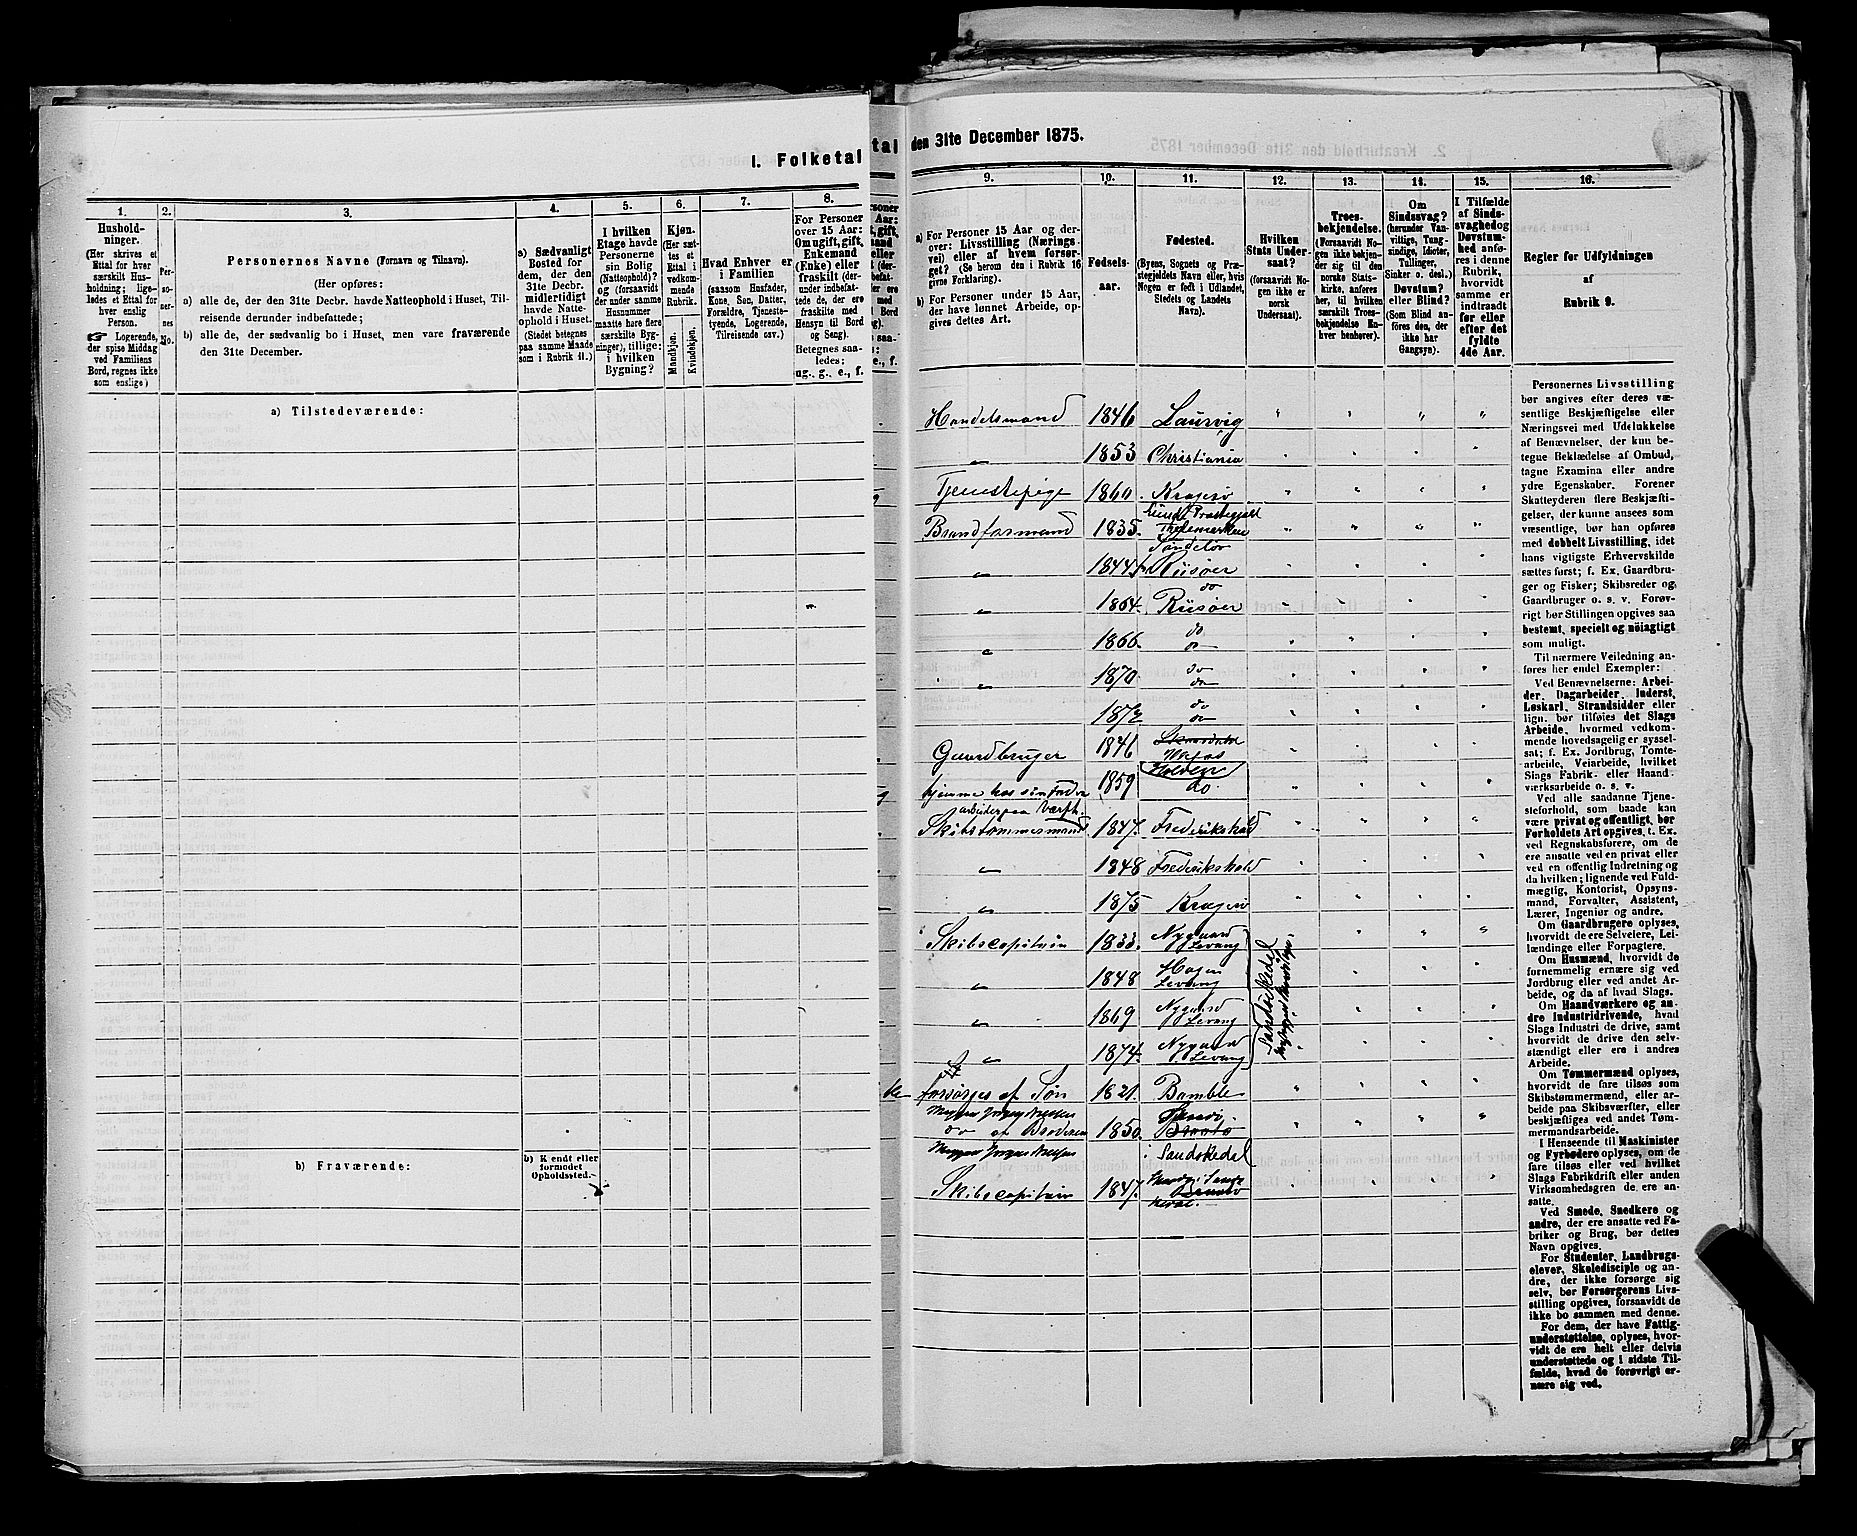 I. Folketal
tal
den 31te December 1875.
1.
2.
3.
4.
5.
6.
7.
8.
Hushold-
ninger.
(Her skrives et
Ettal for hver
særskilt Hus-
holdning; lige-
ledes et Ettal for
hver enslig
Person.
☞ Logerende,
der spise Middag
ved Familiens
Bord, regnes ikke
som enslige)
Per-
so-
ner-
nes
No.
Personernes Navne (Fornavn og Tilnavn).
(Her opføres:
a) alle de, der den 31te Decbr. havde Natteophold i Huset, Til-
reisende derunder indbefattede;
b) alle de, der sædvanlig bo i Huset, men vare fraværende
den 31te December.
a) Sædvanligt
Bosted for
dem, der den
31te Decbr.
midlertidigt
havde Natte-
ophold i Huset.
(Stedet betegnes
paa samme Maade
som i Rubrik 11.)
I hvilken
Etage havde
Personerne
sin Bolig
(Natteophold)?
og (forsaavidt
der under samme
Husnummer
maatte høre flere
særskilte Byg-
ninger), tillige:
i hvilken
Bygning?
Kjøn.
(Her sæt-
tes et
Ettal i
vedkom-
mende
Rubrik.
Mandkjøn.
Kvindekjøn.
Hvad Enhver er
i Familien
(saasom Husfader,
Kone, Søn, Datter,
Forældre, Tjeneste-
tyende, Logerende,
Tilreisende osv.)
For Personer
over 15 Aar:
Om ugift, gift,
Enkemand
(Enke) eller
fraskilt (der-
under indbefat-
tede de, der ere
fraskilte med
Hensyn til Bord
og Seng).
Betegnes saa-
ledes:
ug., g., e., f.
a) Tilstedeværende:
b) Fraværende:
b) Kjendt eller
formodet
Opholdssted.
9.
10.
11.
12.
13.
14.
15.
16.
a) For Personer 15 Aar og der-
over: Livsstilling (Nærings-
vei) eller af hvem forsør-
get? (Se herom den i Rubrik 16
givne Forklaring).
b) For Personer under 15 Aar,
der have lønnet Arbeide, op-
gives dettes Art.
Fødsels-
aar.
Fødested.
(Byens, Sognets og Præ-
stegjeldets Navn eller, hvis
Nogen er født i Udlandet,
Stedets og Landets
Navn).
Hvilken
Stats Under-
saat?
(forsaavidt No-
gen ikke er
norsk
Undersaat).
Troes-
bekjendelse.
(Forsaavidt No-
gen ikke bekjen-
der sig til den
norske Stats-
kirke, anføres
her, til hvilken
særskilt Troes-
bekjendelse En-
hver henhører).
Om
Sindssvag?
(herunder Van-
vittige, Tung-
sindige, Idioter,
Tullinger,
Sinker o. desl.)
Døvstum?
eller Blind?
(Som Blind an-
føres den, der
ikke har
Gangsyn).
I Tilfælde
af Sinds-
svaghed og
Døvstum-
hed anfø-
res i denne
Rubrik,
hvorvidt
samme er
indtraadt
før eller
efter det
fyldte
4de Aar.
Regler for Udfyldningen
af
Rubrik 9.
Handelsmand 1846 Laurvig
1853 Christiania
Tjenestepige 1860 Kragerø
Brandformand 1835
Thelemarken
Søndeløv
1844 Riisøer
do
1864. Riisøer
1866. do
do
1870 do
do
1872 do
do
Gaardbruger 1846
Holden
hjemme hos sin Fader 1859 do.
arbeider paa Værft.
Skibstømmermand 1847. Frederikshald
1848 Frederikshald
1875 Kragerø
Skibscapitain 1833. Nygaard
Levang
1848 Hagen
Levang
1869 Nygaard
Levang
1874. Nygaard
Levang
Sandøkedel
forsørges af Søn 1821. Bamble
do af Broderen 1850.
Sandøkedel
Skibscapitain 1847.
Personernes Livsstilling
bør angives efter deres væ-
sentlige Beskjæftigelse eller
Næringsvei med Udelukkelse
af Benævnelser, der kun be-
tegne Beklædelse af Ombud,
tagne Examina eller andre
ydre Egenskaber. Forener
Skatteyderen flere Beskjæfti-
gelser, der kunne ansees som
væsentlige, bør han opføres
med dobbelt Livsstilling, idet
hans vigtigste Erhvervskilde
sættes først; f. Ex. Gaardbru-
ger og Fisker; Skibsreder og
Gaardbruger o. s. v. Forøv-
rigt bør Stillingen opgives saa
bestemt, specielt og nøiagtigt
som muligt.
Til nærmere Veiledning an-
føres her endel Exempler:
Ved Benævnelserne: Arbei-
der, Dagarbeider, Inderst,
Løskarl, Strandsidder eller
lign. bør tilføies det Slags
Arbeide, hvormed vedkom-
mende hovedsagelig er syssel-
sat; f. Ex. Jordbrug, Tomte-
arbeide, Veiarbeide, hvilket
Slags Fabrik- eller Haand-
værksarbeide o. s. v.
Ved alle saadanne Tjene-
steforhold, som baade kan
være privat og offentligt, bør
Forholdets Art opgives, t. Ex.
ved Regnskabsførere, om de
ere ansatte ved en privat eller
ved en offentlig Indretning og
da hvilken; lignende ved Fuld-
mægtig, Kontorist, Opsyns-
mand, Forvalter, Assistent,
Lærer, Ingeniør og andre.
Om Gaardbrugere oplyses,
hvorvidt de ere Selveiere, Lei-
lændinge eller Forpagtere.
Om Husmænd, hvorvidt de
fornemmelig ernære sig ved
Jordbrug eller ved andet Ar-
beide, og da af hvad Slags.
Om Haandværkere og an-
dre Industridrivende, hvad
Slags Industri de drive, samt
hvorvidt de drive den selv-
stændigt eller ere i andres
Arbeide.
Om Tømmermænd oplyses,
hvorvidt de fare tilsøs som
Skibstømmermænd, eller ar-
beide paa Skibsværfter, eller
beskjæftiges ved andet Tøm-
mermandsarbeide.
I Henseende til Maskinister
og Fyrbødere oplyses, om de
fare tilsøs eller ved hvilket
Slags Fabrikdrift eller anden
Virksomhedsgren de ere an-
satte.
Ved Smede, Snedkere og
andre, der ere ansatte ved Fa-
briker og Brug, bør dettes
Navn opgives.
For Studenter, Landbrugs-
elever, Skoledisciple og an-
dre, der ikke forsørge sig
selv, bør Forsørgerens Livs-
stilling opgives, forsaavidt de
ikke bo sammen med denne.
For dem, der have Fattig-
understøttelse, oplyses, hvor-
vidt de ere helt eller delvis
understøttede og i sidste Til-
fælde, hvad de forøvrigt er-
nære sig ved.